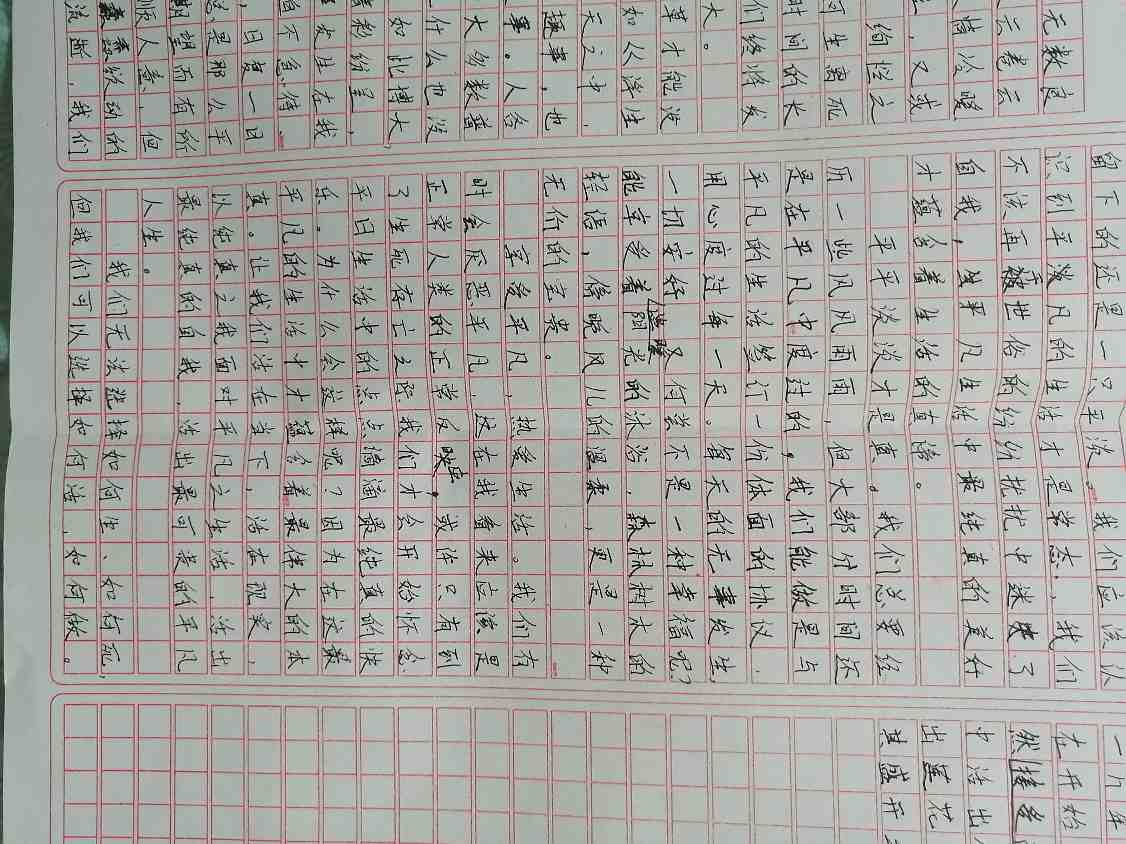 无数良
云卷云
情冷暖
，又感
绚烂之
生离死
时间的长
们终将发
大。
草才能没
如人浮生
天之中，
事，也
事。人给
大勿数
什么也没
如此博大，
纷呈，
发且在我
值不急待
，日复一日
总是那么平
期望而有所
顺人意，但
动的
流逝，我们
留下的还是一只平淡。我们应该认
识到平淡平凡的生活才是常态，我们
不该再被世俗的纷纷扰扰中迷失了
自我，平凡生活中最纯真的美好
才蕴含着生活的真谛。
平平淡淡才是真。我们总要经
历一些风风雨雨，但大部付时间还
是在平凡中度过的，我们能做是与
平凡的生活签订一份体面的协议，
用心度过每一天。每天的无事发生，
一切安好又何尝不是一种幸福呢？
能享受着温暖阳光的沐浴，森林树木的
轻语，傍晚风儿的温柔，更是一种
无价的宝贝。
享受平凡，热爱生活。我们有
时会厌恶平凡，这在我看来应该是
正常人类的正常反映，或许只有到
了生死存亡之际我们才会开始怀念
平日生活中的点点滴滴最纯真的快
乐。为什么会这样呢？因为在这最
平凡的生活中才蕴含着最伟大的本
真。让我们活在当下，活在现实，
以纯真之我面对平凡之生活，活出
最纯真的自我，活出最可爱的平凡
人生。
我们无法选择如何生、如何死，
但我们可以选择如何活，如何做。
一个年
在开始
然接受
中活出
出莲花
其盛开